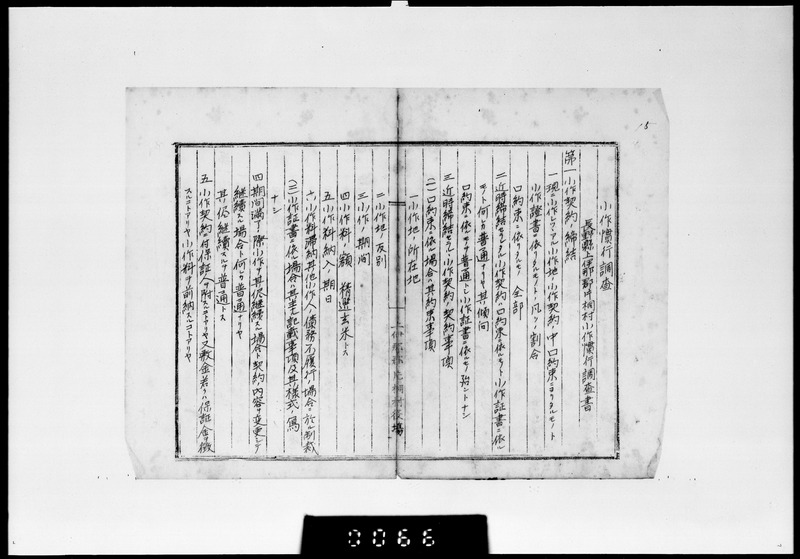 5
小作慣行調査
長野縣上伊那郡片桐村小作慣行調査書
第一 小作契約ノ締結
一 現ニ小作シツヽアル小作地ノ小作契約中口約束ニヨリタルモノト
小作證書ニ依リタルモノトノ凡ソノ割合
口約束ニ依リタルモノ 全部
二 近時締結セラルヽ小作契約ハ口約束ニ依ルモノト小作証書ニ依ル
モノト何レカ普通ナリヤ其ノ傾向
口約束ニ依ルモノヲ普通トシ小作証書ニ依ルモノ殆ントナシ
三 近時締結セラルヽ小作契約ノ契約事項
(一)口約束ニ依ル場合ノ其約束事項
一 小作地ノ所在地
二 小作地ノ反別
三 小作ノ期間
四 小作料ノ額 精選玄米トス
五 小作料納入ノ期日
六 小作料滞納其他小作人ノ債務不履行ノ場合ニ於ル制裁
(二)小作証書ニ依ル場合ハ其主ナル記載事項及其様式ノ寫
ナシ
四 期間満了ノ際小作ヲ其侭継續スル場合ト契約内容ヲ変更シテ
継續スル場合ト何レカ普通ナリヤ
其侭継續スルヲ普通トス
五 小作契約ニ付保証人ヲ附スルコトアリヤ又敷金若クハ保証金ヲ徴
スルコトアリヤ小作料ヲ前納スルコトアリヤ
上伊那郡片桐村役場
0066